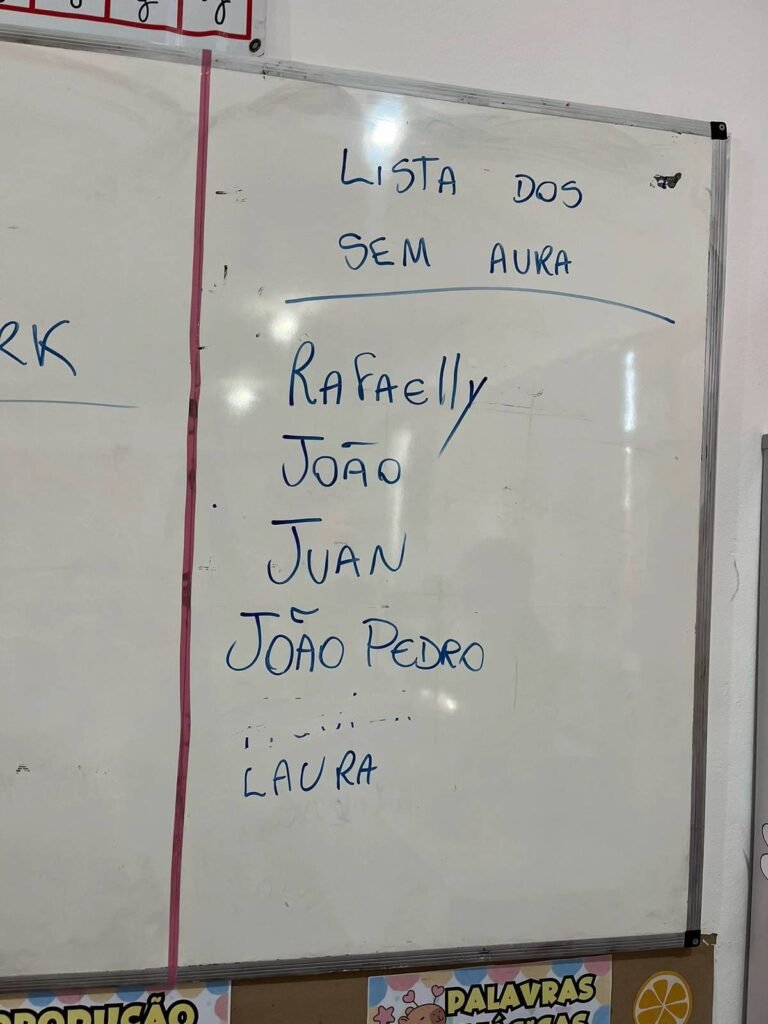 RK
LISTA DOS
SEM AURA
RAFAElly
JOÃO
JUAN
JOÃO PEDRO
LAURA
PRODUÇÃO
PALAVRAS